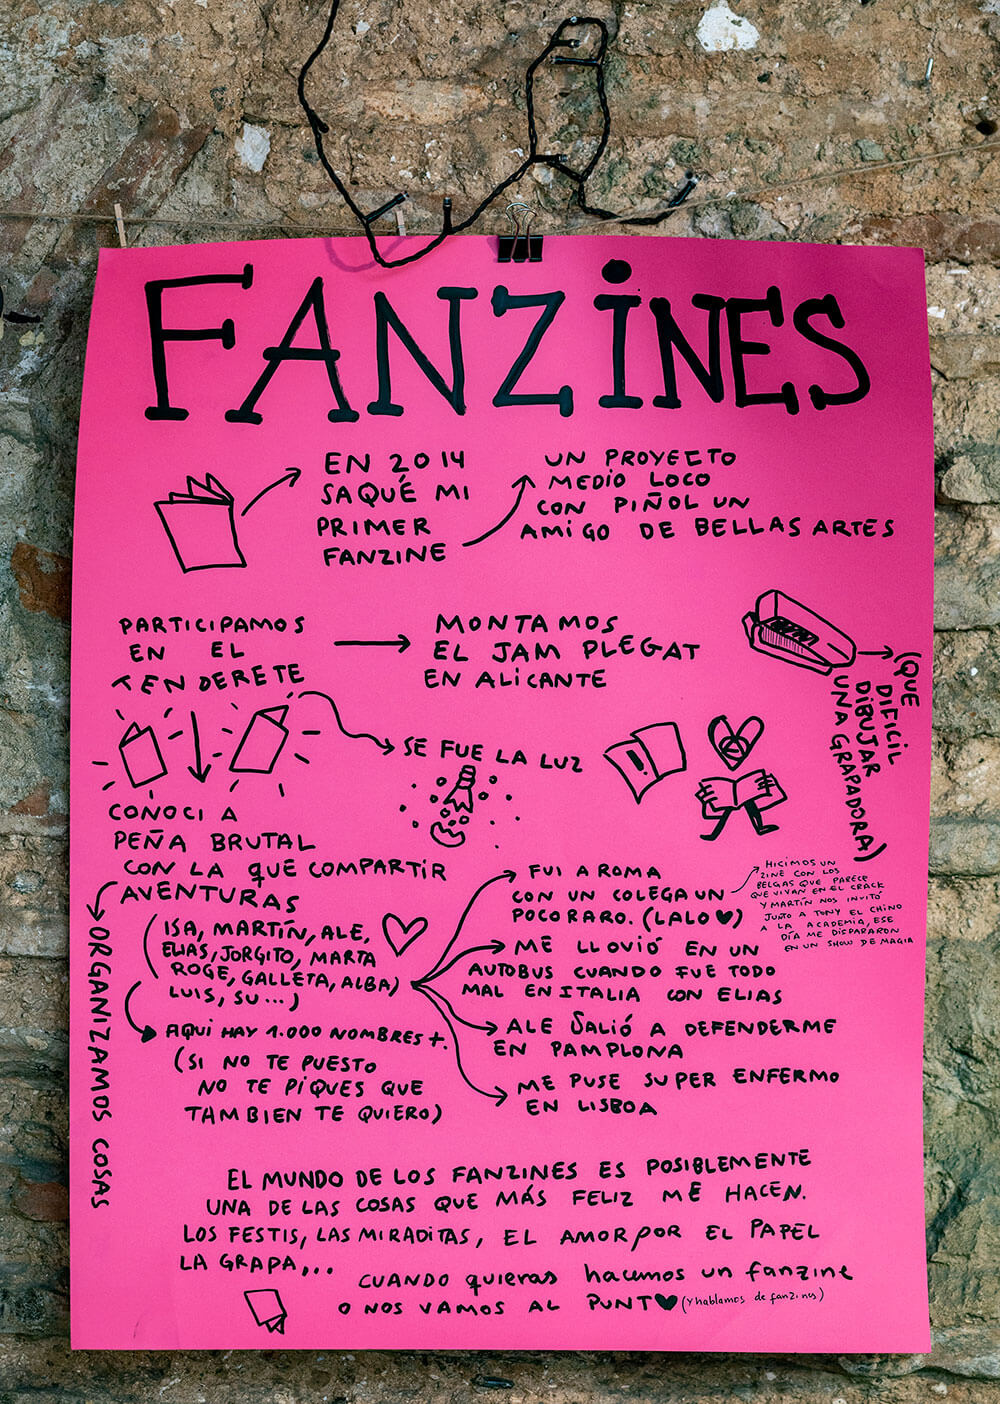 FANZINES
EN 2014
SAQUÉ MI
PRIMER
FANZINE
UN PROYECTO
MEDIO LOCO
CON PIÑOL UN
AMIGO DE BELLAS ARTES
PARTICIPAMOS
EN EL
TENDERETE
MONTAMOS
EL JAM PLEGAT
EN ALICANTE
(QUE
DIFICIL
DIBUJAR
UNA GRAPADORA)
SE FUE LA LUZ
!
CONOCI A
PEÑA BRUTAL
CON LA QUE COMPARTIR
AVENTURAS
(ISA, MARTÍN, ALE,
ELIAS, JORGITO, MARTA
ROGE, GALLETA, ALBA)
LUIS, SU...)
AQUI HAY 1.000 NOMBRES+.
(SI NO TE PUESTO
NO TE PIQUES QUE
TAMBIEN TE QUIERO)
ORGANIZAMOS COSAS
FUI A ROMA
CON UN COLEGA UN
POCO RARO. (LALO♥)
HICIMOS UN
ZINE CON LOS
BELGAS QUE PARECE
QUE VIVAN EN EL CRACK
Y MARTÍN NOS INVITÓ
JUNTO A TONY EL CHINO
A LA ACADEMIA, ESE
DÍA ME DISPARARON
EN UN SHOW DE MAGIA
ME LLOVIÓ EN UN
AUTOBUS CUANDO FUE TODO
MAL EN ITALIA CON ELIAS
ALE SALIÓ A DEFENDERME
EN PAMPLONA
ME PUSE SUPER ENFERMO
EN LISBOA
EL MUNDO DE LOS FANZINES ES POSIBLEMENTE
UNA DE LAS COSAS QUE MÁS FELIZ ME HACEN.
LOS FESTIS, LAS MIRADITAS, EL AMOR POR EL PAPEL
LA GRAPA,...
CUANDO quieras hacemos un fanzine
O NOS VAMOS AL PUNT♥ (y hablamos de fanzines)